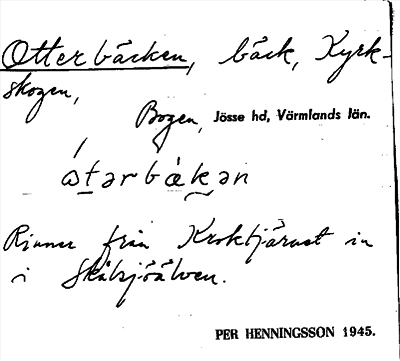 Otterbäcken, bäck, Kyrk-
skogen,
Bogen, Jösse hd, Värmlands län.
ɷ́tərbὰ̀kən
Rinner från Kroktjärnet in
i Skälsjöälven.
PER HENNINGSSON 1945.